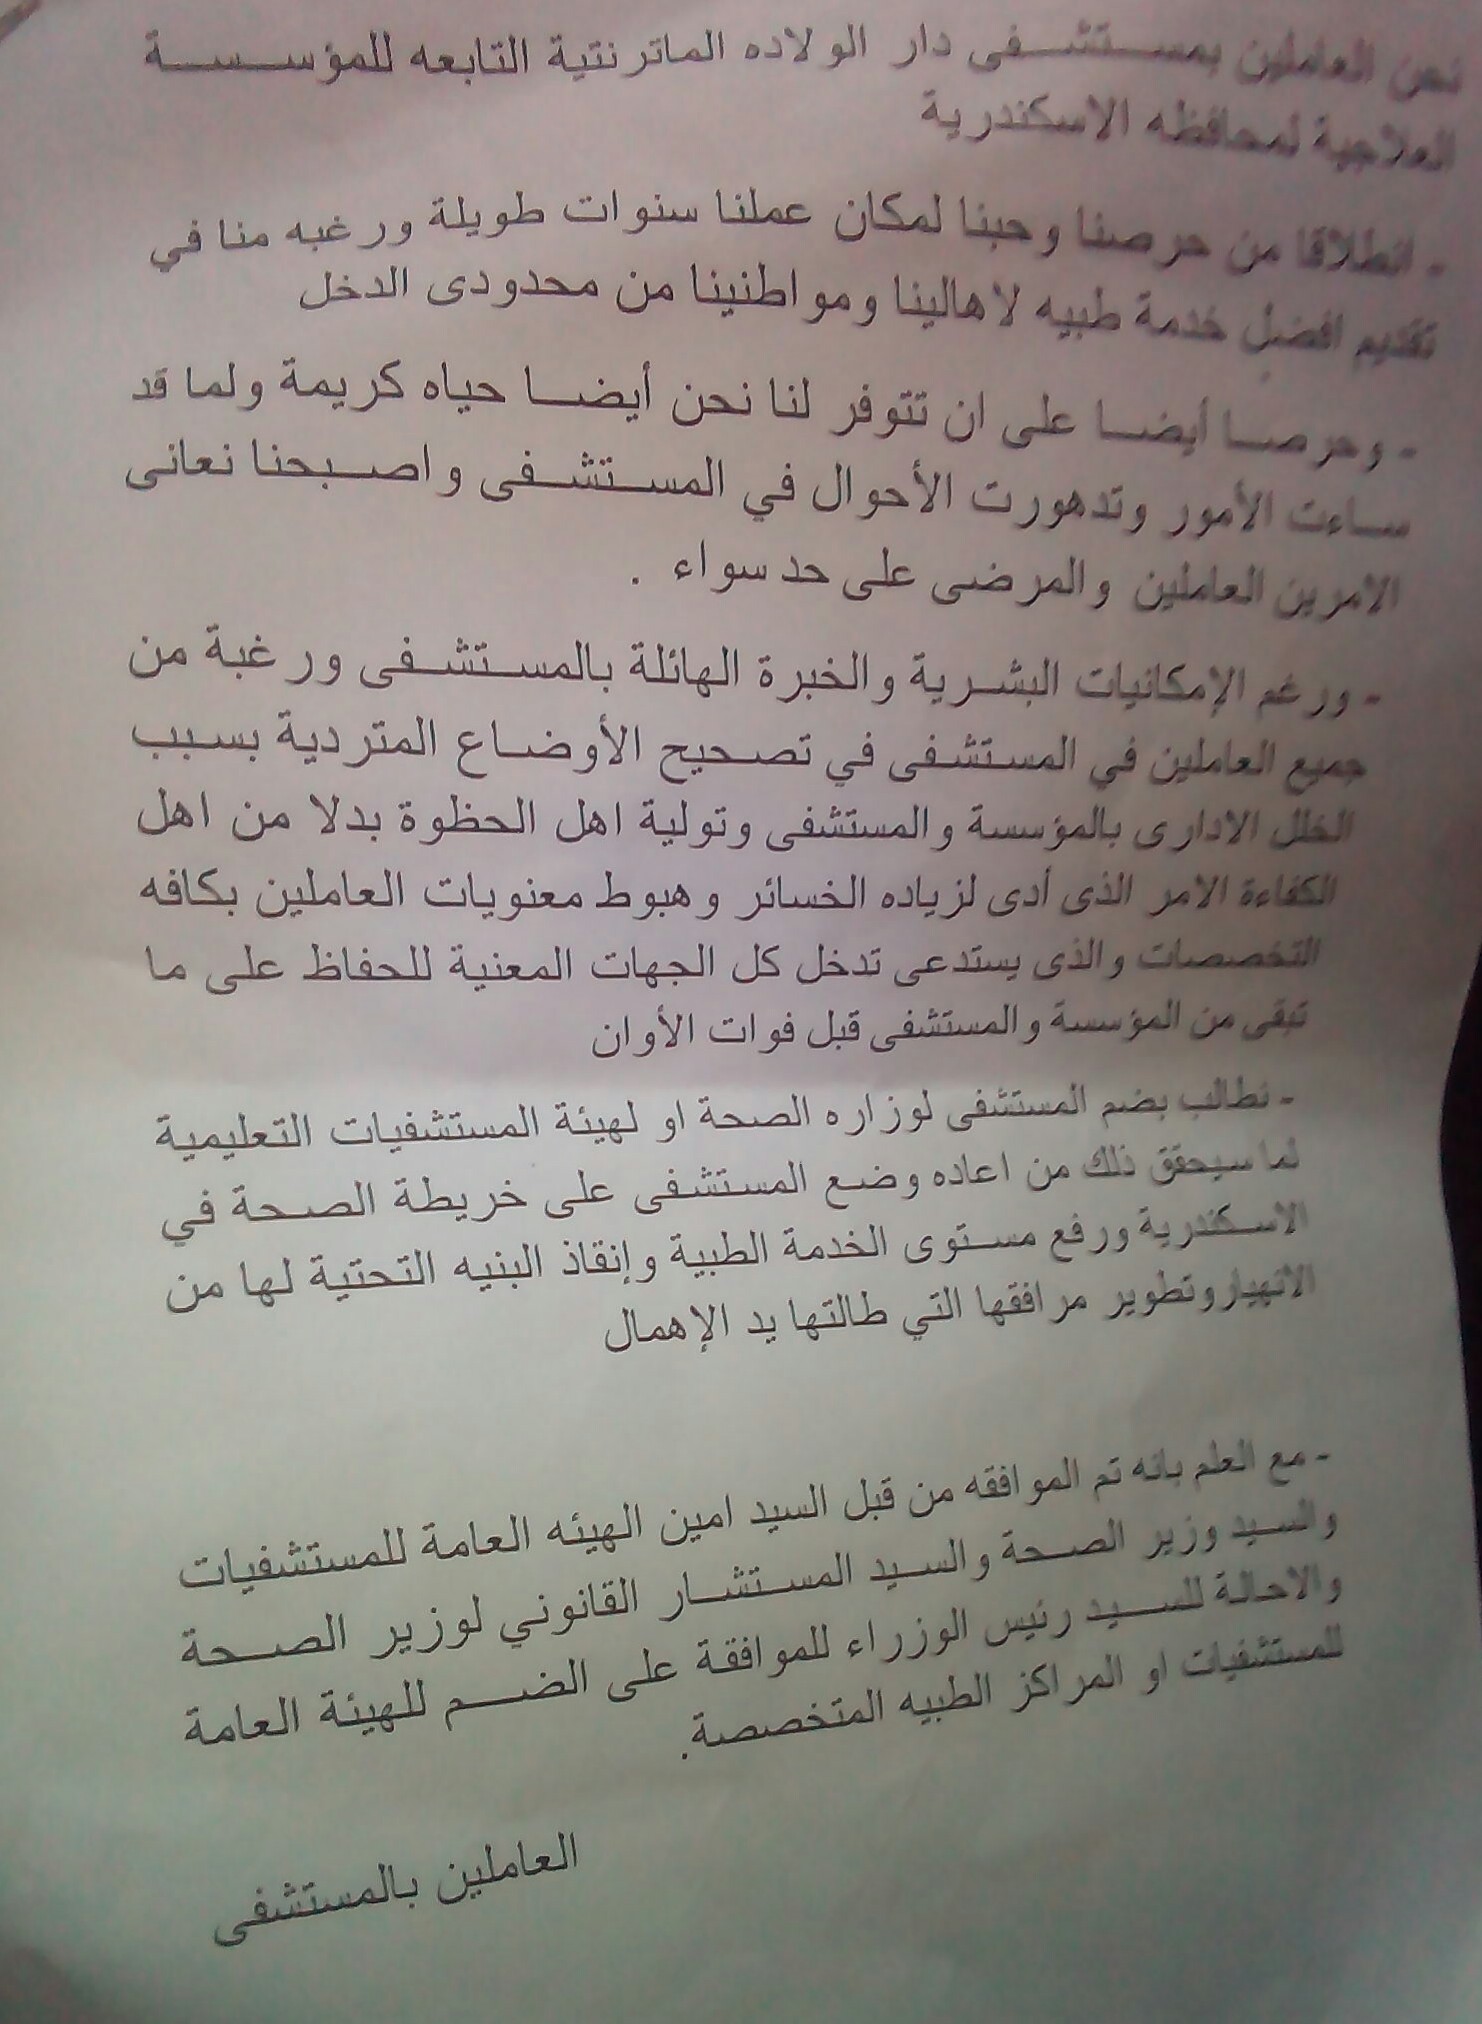 نحن العاملين بمستشفى دار الولاده الماترنتية التابعه للمؤسسة
العلاجية لمحافظه الاسكندرية
- انطلاقا من حرصنا وحبنا لمكان عملنا سنوات طويلة ورغبه منا في
تقديم افضل خدمة طبيه لاهالينا ومواطنينا من محدودى الدخل
- وحرصا أيضا على ان تتوفر لنا نحن أيضا حياه كريمة ولما قد
ساءت الأمور وتدهورت الأحوال في المستشفى واصبحنا نعانى
الامرين العاملين والمرضى على حد سواء .
- ورغم الإمكانيات البشرية والخبرة الهائلة بالمستشفى ورغبة من
جميع العاملين في المستشفى في تصحيح الأوضاع المتردية بسبب
الخلل الادارى بالمؤسسة والمستشفى وتولية اهل الحظوة بدلا من اهل
الكفاءة الامر الذى أدى لزياده الخسائر وهبوط معنويات العاملين بكافه
التخصصات والذى يستدعى تدخل كل الجهات المعنية للحفاظ على ما
تبقى من المؤسسة والمستشفى قبل فوات الأوان
- نطالب بضم المستشفى لوزاره الصحة او لهيئة المستشفيات التعليمية
لما سيحقق ذلك من اعاده وضع المستشفى على خريطة الصحة في
الاسكندرية ورفع مستوى الخدمة الطبية وإنقاذ البنيه التحتية لها من
الانهيار وتطوير مرافقها التي طالتها يد الإهمال
- مع العلم بانه تم الموافقه من قبل السيد امين الهيئه العامة للمستشفيات
والسيد وزير الصحة والسيد المستشار القانوني لوزير الصحة
والاحالة للسيد رئيس الوزراء للموافقة على الضم للهيئة العامة
للمستشفيات او المراكز الطبيه المتخصصة.
العاملين بالمستشفى